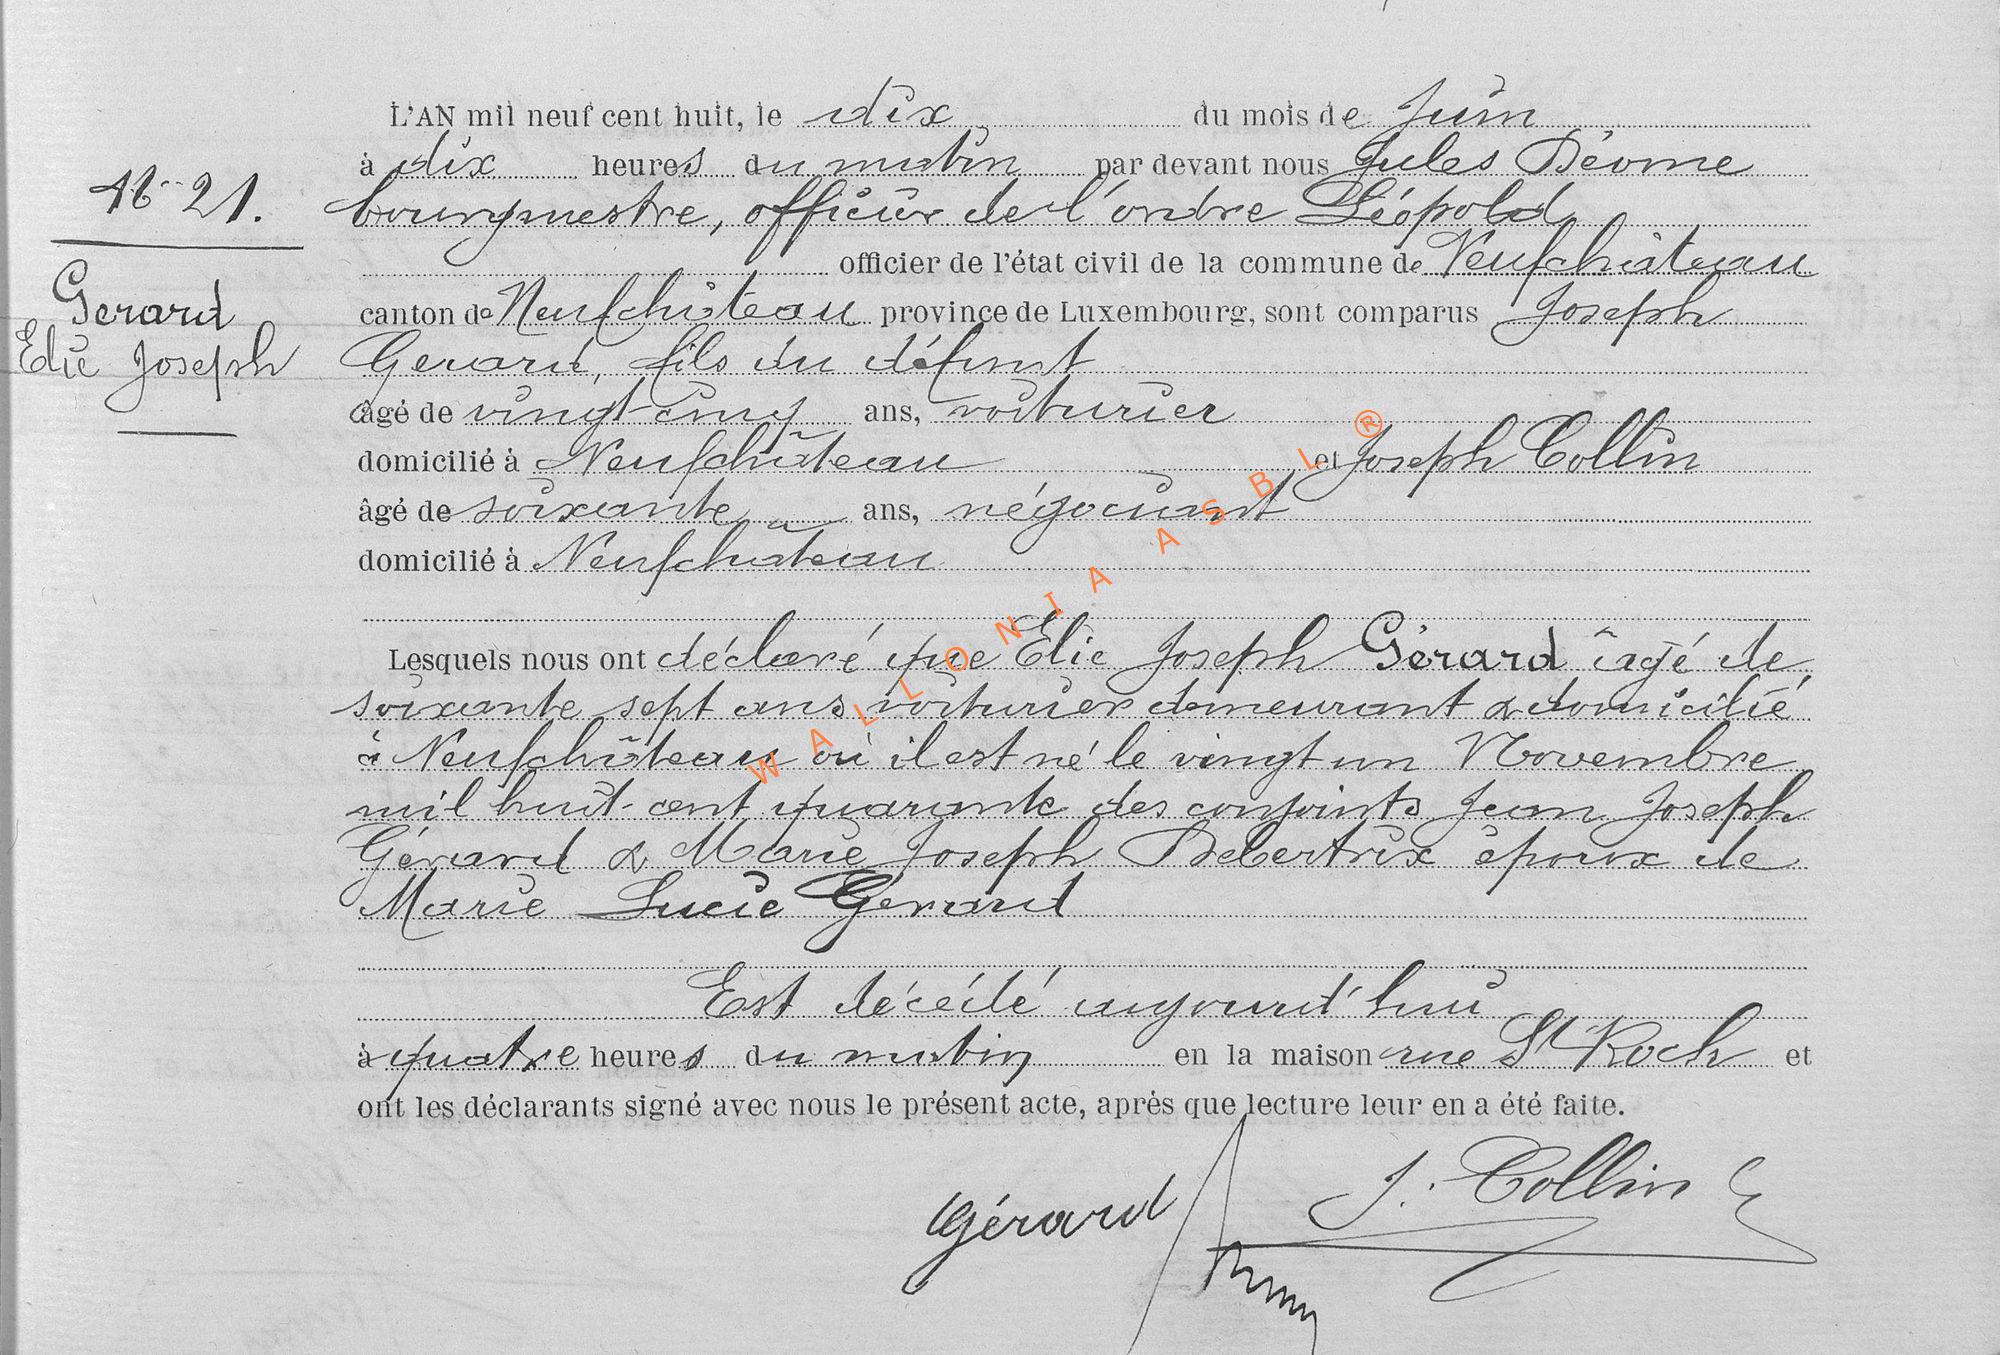 N° 21.
Gerard
Elie Joseph
L'AN mil neuf cent huit, le dix du mois de Juin
à dix heures du matin par devant nous Jules Déome
bourgmestre, officier de l'ordre Léopold
officier de l'état civil de la commune de Neufchâteau
canton de Neufchâteau province de Luxembourg, sont comparus Joseph
Gerard, fils du défunt
âgé de vingt-cinq ans, voiturier
domicilié à Neufchâteau et Joseph Collin
âgé de soixante ans, négociant
domicilié à Neufchâteau
Lesquels nous ont déclaré que Elie Joseph Gérard âgé de
soixante sept ans voiturier demeurant & domicilié
à Neufchâteau où il est né le vingt un Novembre
mil huit-cent quarante des conjoints Jean Joseph
Gérard & Marie Joseph Debertrix époux de
Marie Lucie Gérard
Est décédé aujourd'hui
à quatre heures du matin en la maison rue St Roch et
ont les déclarants signé avec nous le présent acte, après que lecture leur en a été faite.
Gérard J. Collin
WALLONIA ASBL ®